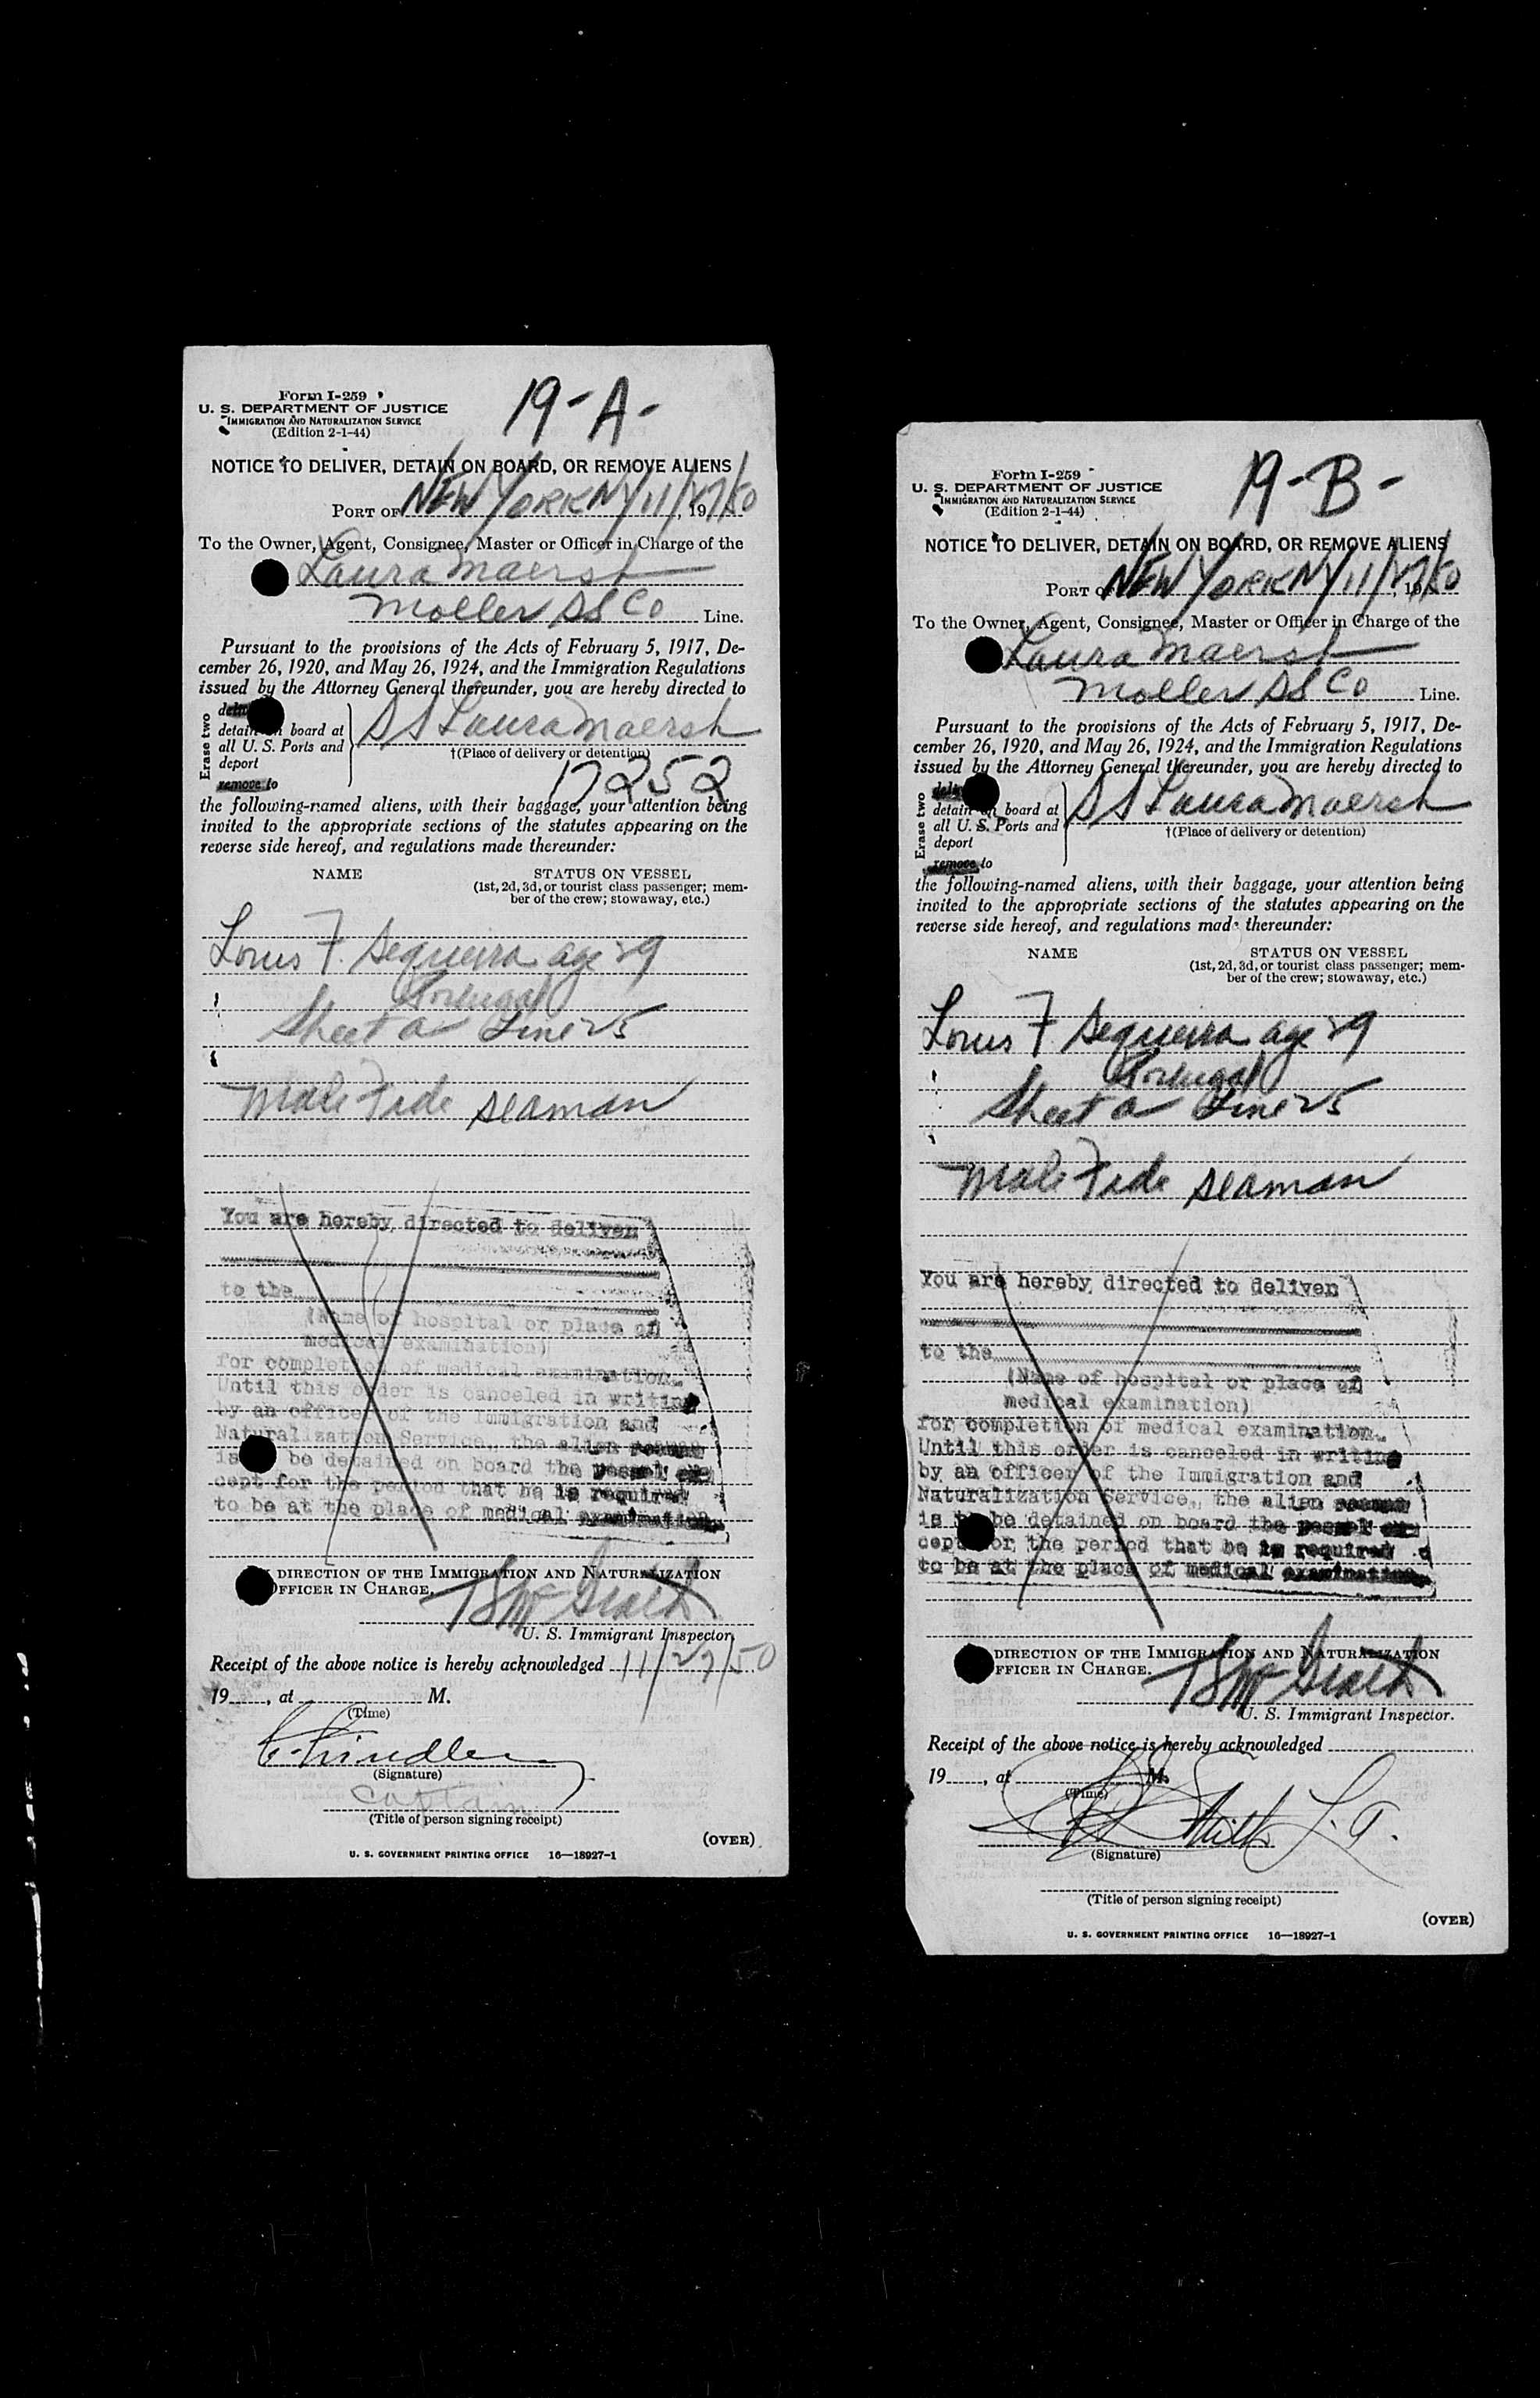 Form I-259
U. S. DEPARTMENT OF JUSTICE
IMMIGRATION AND NATURALIZATION SERVICE
(Edition 2-1-44)
19-A-
NOTICE TO DELIVER, DETAIN ON BOARD, OR REMOVE ALIENS
PORT OF NEW YORK NY 11/27/50, 19
To the Owner, Agent, Consignee, Master or Officer in Charge of the
Laura Maersk
Moller SS Co Line.
Pursuant to the provisions of the Acts of February 5, 1917, De-
cember 26, 1920, and May 26, 1924, and the Immigration Regulations
issued by the Attorney General thereunder, you are hereby directed to
Erase two
detain on board at
all U. S. Ports and
deport
remove to
SS Laura Maersk
†(Place of delivery or detention)
17252
the following-named aliens, with their baggage, your attention being
invited to the appropriate sections of the statutes appearing on the
reverse side hereof, and regulations made thereunder:
NAME STATUS ON VESSEL
(1st, 2d, 3d, or tourist class passenger; mem-
ber of the crew; stowaway, etc.)
Louis F. Sequeira age 29
Portugal
Sheet a Line 25
Mala Fide seaman
You are hereby directed to deliver
to the
(Name of hospital or place of
medical examination)
for completion of medical examination.
Until this order is canceled in writing
by an officer of the Immigration and
Naturalization Service, the alien seaman
is be detained on board the vessel ex-
cept for the period that he is required
to be at the place of medical examination.
DIRECTION OF THE IMMIGRATION AND NATURALIZATION
OFFICER IN CHARGE.
U. S. Immigrant Inspector.
Receipt of the above notice is hereby acknowledged 11/27/50
19 , at M.
(Time)
(Signature)
Captain
(Title of person signing receipt)
(OVER)
U. S. GOVERNMENT PRINTING OFFICE 16—18927-1
Form I-259
U. S. DEPARTMENT OF JUSTICE
IMMIGRATION AND NATURALIZATION SERVICE
(Edition 2-1-44)
19-B-
NOTICE TO DELIVER, DETAIN ON BOARD, OR REMOVE ALIENS
PORT OF NEW YORK NY 11/27/50, 19
To the Owner, Agent, Consignee, Master or Officer in Charge of the
Laura Maersk
Moller SS Co Line.
Pursuant to the provisions of the Acts of February 5, 1917, De-
cember 26, 1920, and May 26, 1924, and the Immigration Regulations
issued by the Attorney General thereunder, you are hereby directed to
Erase two
detain on board at
all U. S. Ports and
deport
remove to
SS Laura Maersk
†(Place of delivery or detention)
the following-named aliens, with their baggage, your attention being
invited to the appropriate sections of the statutes appearing on the
reverse side hereof, and regulations made thereunder:
NAME STATUS ON VESSEL
(1st, 2d, 3d, or tourist class passenger; mem-
ber of the crew; stowaway, etc.)
Louis F. Sequeira age 29
Portugal
Sheet a Line 25
Mala Fide seaman
You are hereby directed to deliver
to the
(Name of hospital or place of
medical examination)
for completion of medical examination.
Until this order is canceled in writing
by an officer of the Immigration and
Naturalization Service, the alien seaman
is to be detained on board the vessel ex-
cept for the period that he is required
to be at the place of medical examination.
DIRECTION OF THE IMMIGRATION AND NATURALIZATION
OFFICER IN CHARGE.
U. S. Immigrant Inspector.
Receipt of the above notice is hereby acknowledged
19 , at M.
(Time)
(Signature)
(Title of person signing receipt)
(OVER)
U. S. GOVERNMENT PRINTING OFFICE 16—18927-1